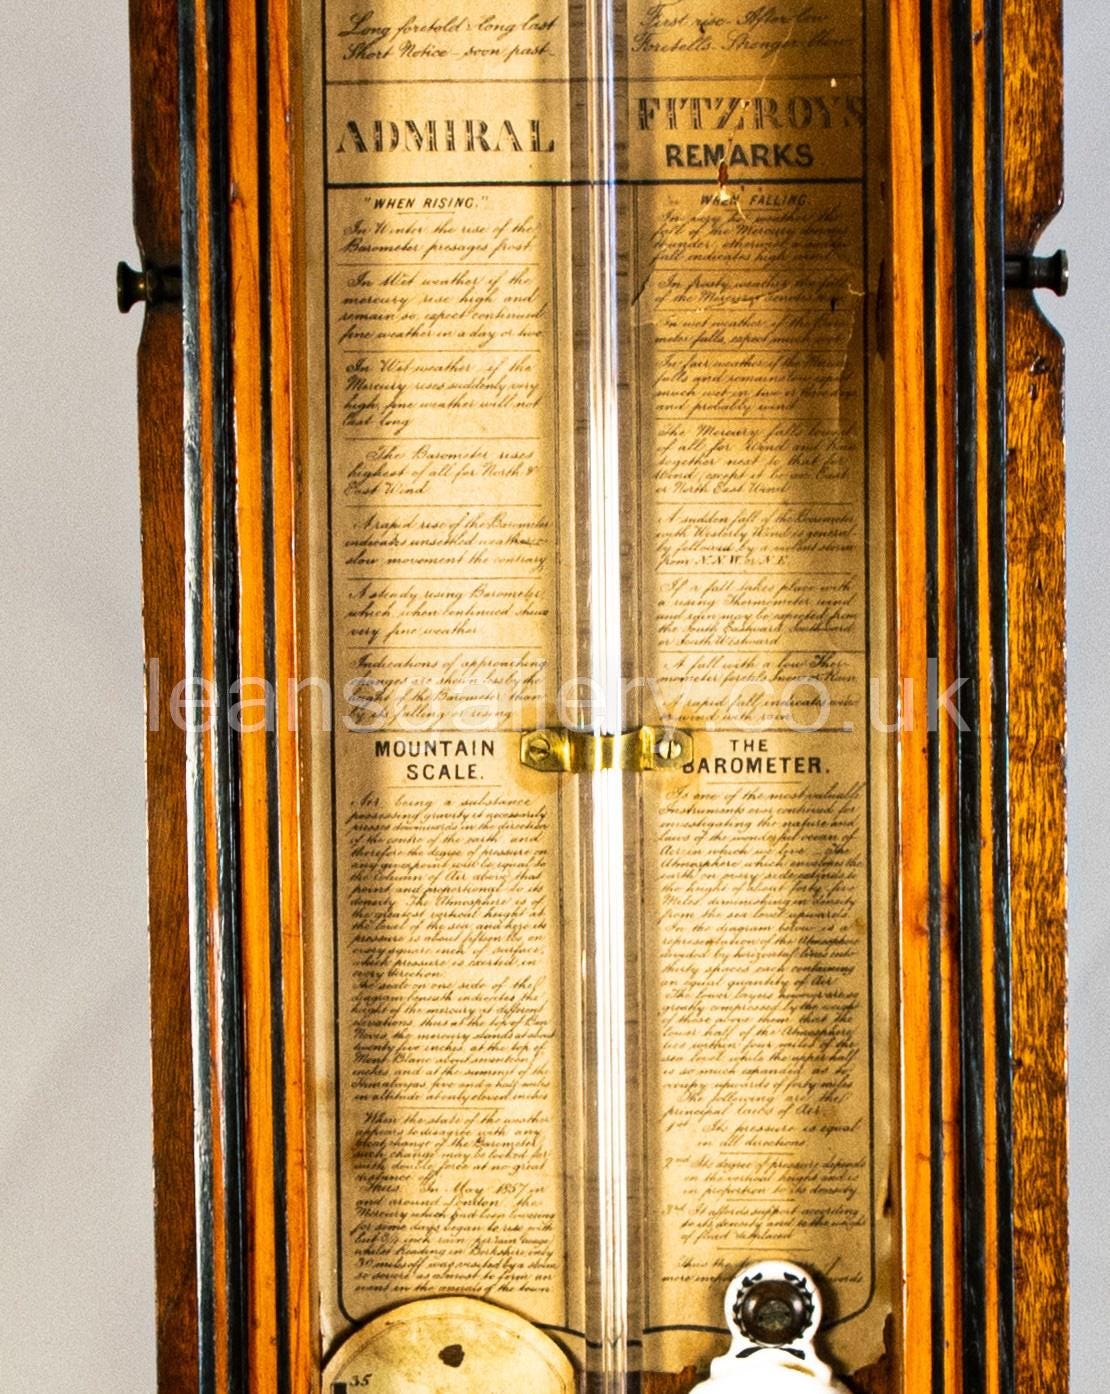 Long foretold - long last
Short Notice - soon past -
First rise - After low
Foretells - Stronger blow
ADMIRAL
FITZROYS
REMARKS
"WHEN RISING."
In Winter the rise of the
Barometer presages frost
In Wet weather if the
mercury rise high and
remain so expect continued
fine weather in a day or two
In Wet weather if the
Mercury rises suddenly very
high, fine weather will not
last long
The Barometer rises
highest of all for North &
East Wind
A rapid rise of the Barometer
indicates unsettled weather
slow movement the contrary
A steady rising Barometer
which when continued shews
very fine weather
Indications of approaching
changes are shewn less by the
height of the Barometer than
by its falling or rising
WHEN FALLING.
In very hot weather the
fall of the Mercury denotes
thunder, otherwise a sudden
fall indicates high wind
In frosty weather the fall
of the Mercury denotes
In wet weather if the Baro-
meter falls, expect much wet
In fair weather if the Mercury
falls and remains low expect
much wet in two or three days
and probably wind
The Mercury falls lowest
of all for Wind and Rain
together next to that for
Wind, except it be an East
or North East Wind
A sudden fall of the Barometer
with Westerly Wind is general-
by followed by a violent storm
from N.N.W. or N.E
If a fall takes place with
a rising Thermometer wind
and rain may be expected from
the South Eastward Southward
or South Westward
A fall with a low Ther-
mometer foretels Snow or Rain
A rapid fall, indicates
wind with rain
leansgallery.co.uk
MOUNTAIN
SCALE.
Air being a substance
possessing gravity it necessarily
presses downwards in the direction
of the centre of the earth and
therefore the degree of pressure on
any given point will be equal to
the column of Air above that
point and proportional to its
density. The Atmosphere is of
the greatest vertical height at
the level of the sea and here its
pressure is about fifteen lbs on
every square inch of surface,
which pressure is exerted in
every direction.
The scale on one side of the
diagram beneath indicates the
height of the mercury at different
elevations, thus at the top of Ben
Nevis, the mercury stands at about
twenty five inches, at the top of
Mont Blanc about seventeen
inches and at the summit of the
Himalayas five and a half miles
in altitude at only eleven inches
When the state of the weather
appears to disagree with any
great change of the Barometer
such change may be looked for
with double force at no great
distance off
Thus. In May 1857 in
and around London the
Mercury which had been lowering
for some days began to rise with
but 3/4 inch rain per rain gauge
whilst Reading in Berkshire only
30 miles off was visited by a storm
so severe as almost to form an
event in the annals of the town
THE
BAROMETER.
Is one of the most valuable
Instruments ever contrived for
investigating the nature and
Laws of the wonderful ocean of
Air in which we live - The
Atmosphere which envelopes the
earth on every side extends to
the height of about forty five
Miles diminishing in density
from the sea level upwards.
In the diagram below is a
representation of the Atmosphere
divided by horizontal lines into
thirty spaces each containing
an equal quantity of Air
The lower layers however are so
greatly compressed by the weight
of those above them that the
lower half of the Atmosphere
lies within four miles of the
sea level while the upper half
is so much expanded as to
occupy upwards of forty miles
The following are the
principal laws of Air
1st Its pressure is equal
in all directions.
2nd Its degree of pressure depends
on the vertical height and is
in proportion to its density
3rd It affords support according
to its density and to the weight
of fluid displaced
Thus the
more
35